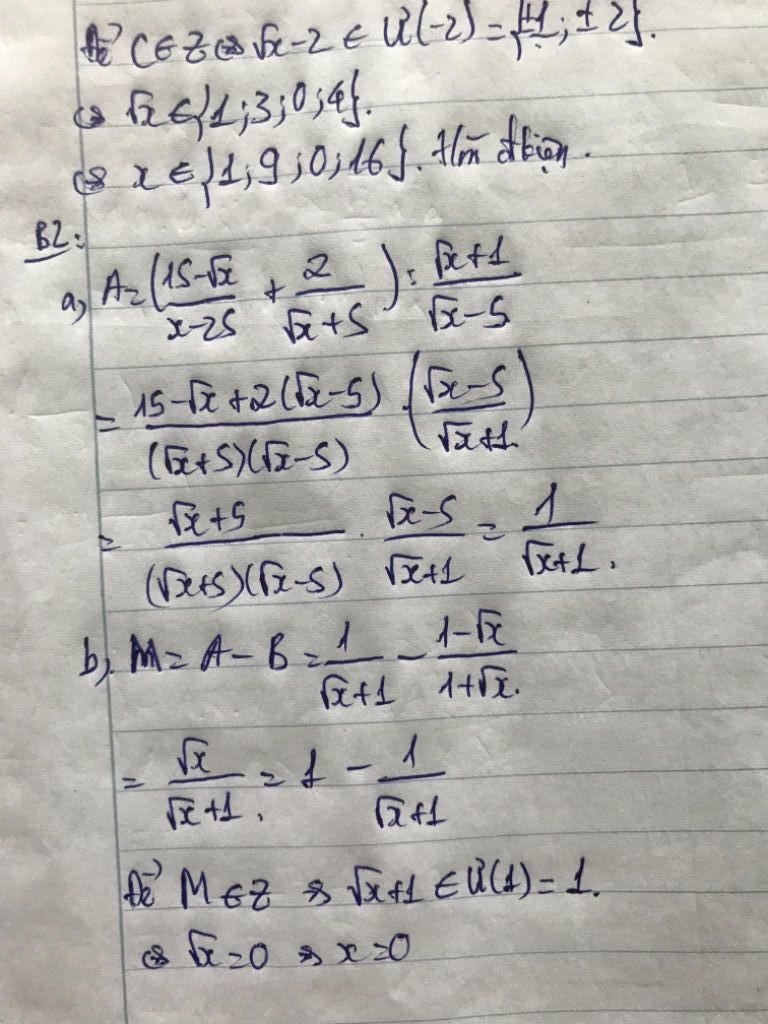 Để C ∈ Z ⇔ √x - 2 ∈ Ư(-2) = {±1; ±2}.
⇔ √x ∈ {1; 3; 0; 4}.
⇔ x ∈ {1; 9; 0; 16}. t/m đkiện.
B2:
a, A = (15-√x / x-25 + 2 / √x+5) : √x+1 / √x-5
= 15-√x+2(√x-5) / (√x+5)(√x-5) . (√x-5 / √x+1.)
= √x+5 / (√x+5)(√x-5) . √x-5 / √x+1 = 1 / √x+1.
b, M = A - B = 1 / √x+1 - 1-√x / 1+√x.
= √x / √x+1. = 1 - 1 / √x+1
Để M ∈ Z ⇔ √x+1 ∈ Ư(1) = 1.
⇔ √x = 0 ⇔ x = 0